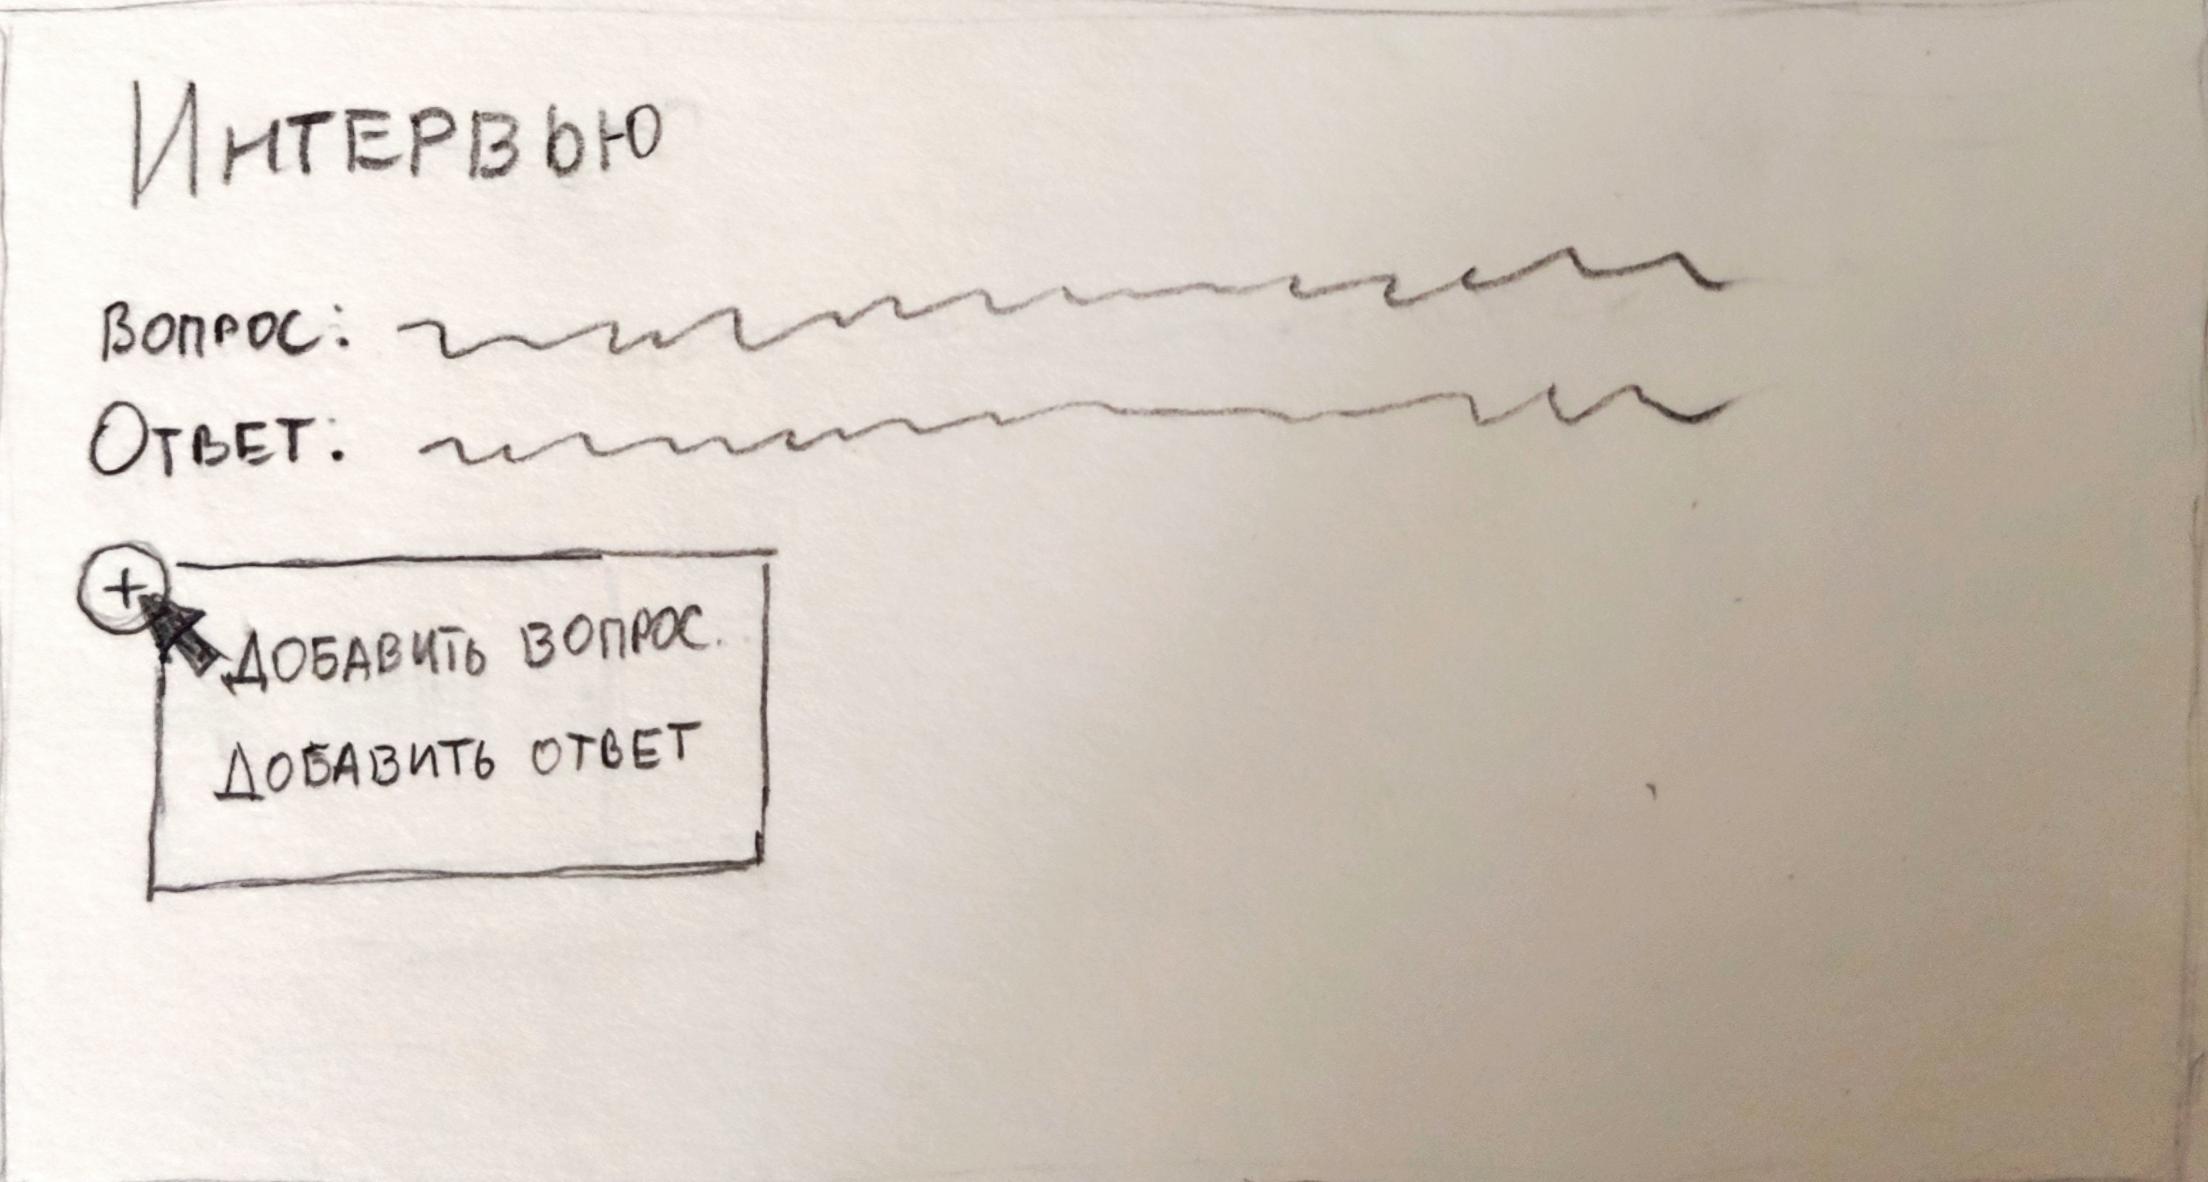 Интервью
Вопрос:
Ответ:
+
Добавить вопрос.
Добавить ответ